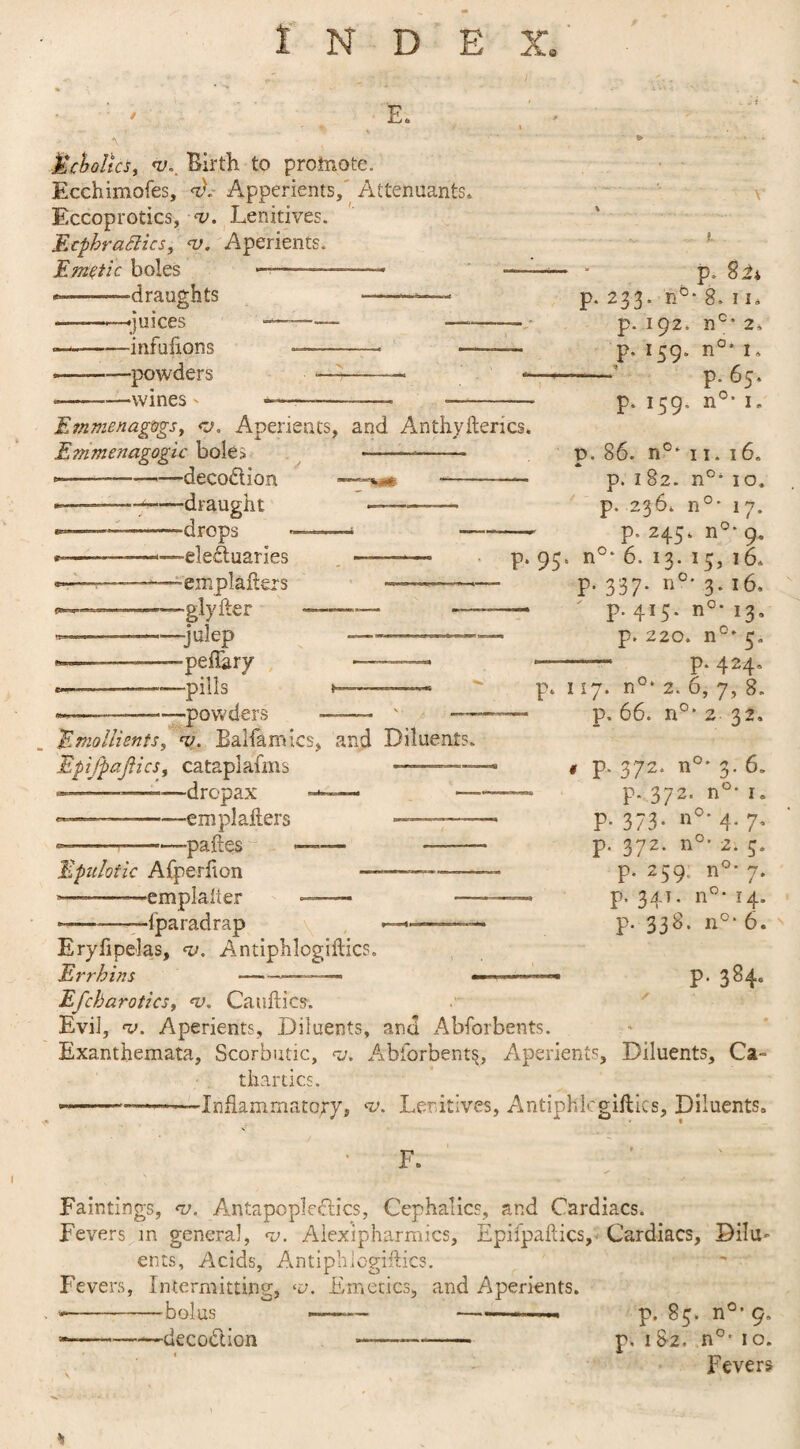 INDEX.
E.
Echolics, v. Birth to promote.
Ecchimoſes, v. Apperients, Attenuants.
Eccoprotics, v. Lenitives.
Ecphractics, v. Aperients.
Emetic boles ——— ——— p. 82.
———draughts ——— p. 233. nᵒ· 8. 11.
———juices ——— ——— p. 192. nᵒ· 2.
———infuſions ——— ——— p. 159. nᵒ· 1.
———powders ——— ——— p. 65.
———wines ——— ——— p. 159. nᵒ· 1.
Emmenagogs, v. Aperients, and Anthyſterics.
Emmenagogic boles ——— p. 86. nᵒ· 11. 16.
———decoction ——— ——— p. 182. nᵒ· 10.
———draught ——— p. 236. nᵒ· 17.
———drops ——— ——— p. 245. nᵒ· 9.
———electuaries ——— p. 95. nᵒ· 6. 13. 15, 16.
———emplaſters ——— p. 337. nᵒ· 3. 16.
———glyſter ——— ——— p. 415. nᵒ· 13.
———julep ——— p. 220. nᵒ· 5.
———peſſary ——— ——— p. 424.
———pills ——— p. 117. nᵒ· 2. 6, 7, 8.
———powders ——— ——— p. 66. nᵒ· 2 32.
Emollients, v. Balſamics, and Diluents.
Epiſpaſtics, cataplaſms ——— p. 372. nᵒ· 3. 6.
———dropax ——— ——— p. 372. nᵒ· 1.
———emplaſters ——— p. 373. nᵒ· 4. 7.
———paſtes ——— ——— p. 372. nᵒ· 2. 5.
Epulotic Aſperſion ——— p. 259. nᵒ· 7.
———emplaſter ——— ——— p. 341. nᵒ· 14.
———ſparadrap ——— p. 338. nᵒ· 6.
Eryſipelas, v. Antiphlogiſtics.
Errhins ——— ——— p. 384.
Eſcharotics, v. Cauſtics.
Evil, v. Aperients, Diluents, and Abſorbents.
Exanthemata, Scorbutic, v. Abſorbents, Aperients, Diluents, Ca-
thartics.
———Inflammatory, v. Lenitives, Antiphlogiſtics, Diluents.
F.
Faintings, v. Antapoplectics, Cephalics, and Cardiacs.
Fevers in general, v. Alexipharmics, Epiſpaſtics, Cardiacs, Dilu-
ents, Acids, Antiphlogiſtics.
Fevers, Intermitting, v. Emetics, and Aperients.
———bolus ——— ——— p. 85. nᵒ· 9.
———decoction ——— p. 182. nᵒ· 10.
Fevers